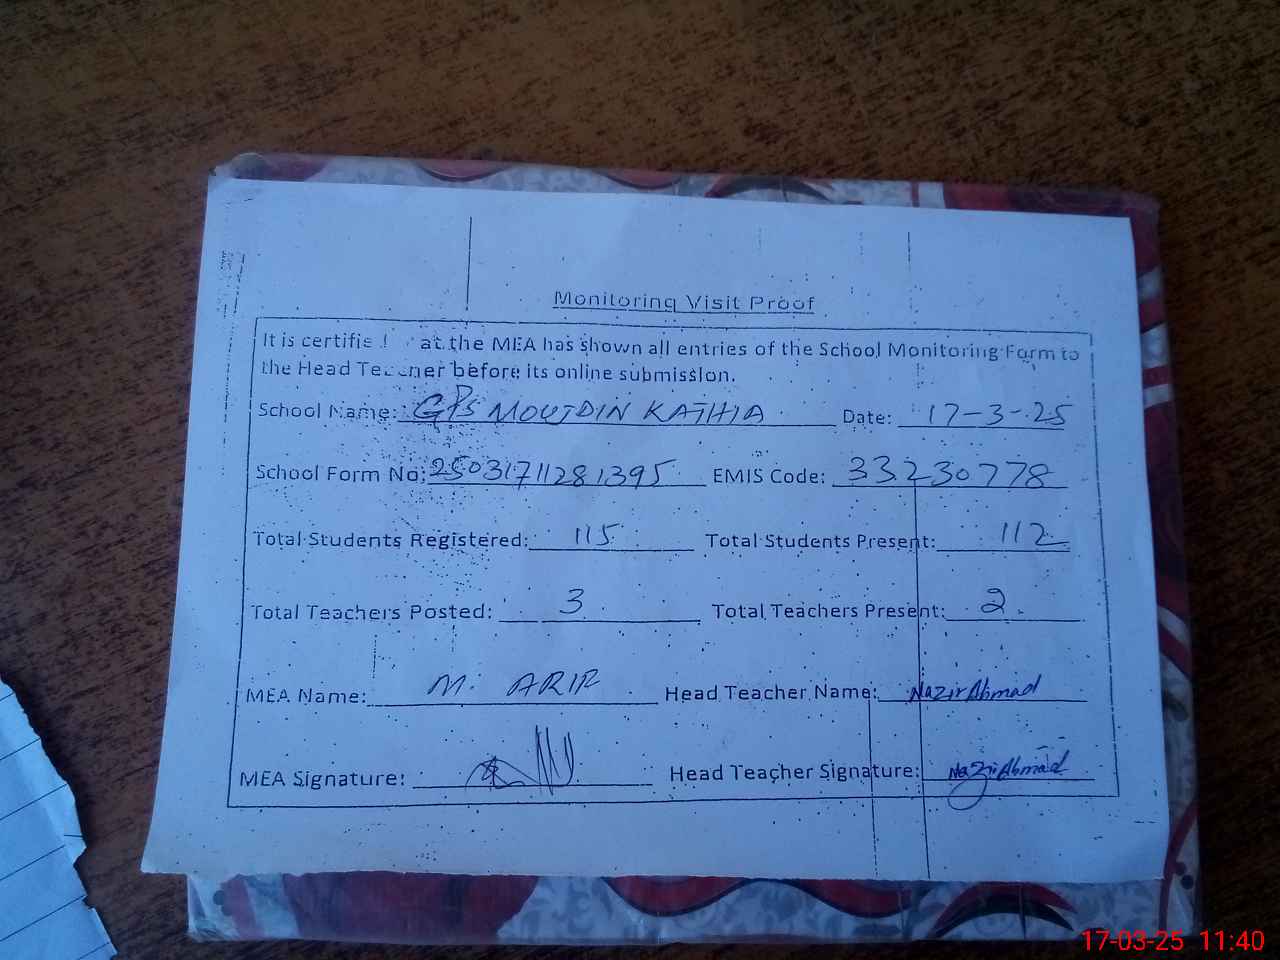 Monitoring Visit Proof
It is certifie at the MEA has shown all entries of the School Monitoring Form to
the Head Teacher before its online submission.
School Name: GPS MOUJDIN KATHIA Date: 17-3-25
School Form No: 25031711281395 EMIS Code: 33230778
Total Students Registered: 115 Total Students Present: 112
Total Teachers Posted: 3 Total Teachers Present: 2
MEA Name: M. ARIF Head Teacher Name: Nazir Ahmad
MEA Signature: Head Teacher Signature: Nazir Ahmad
17-03-25 11:40